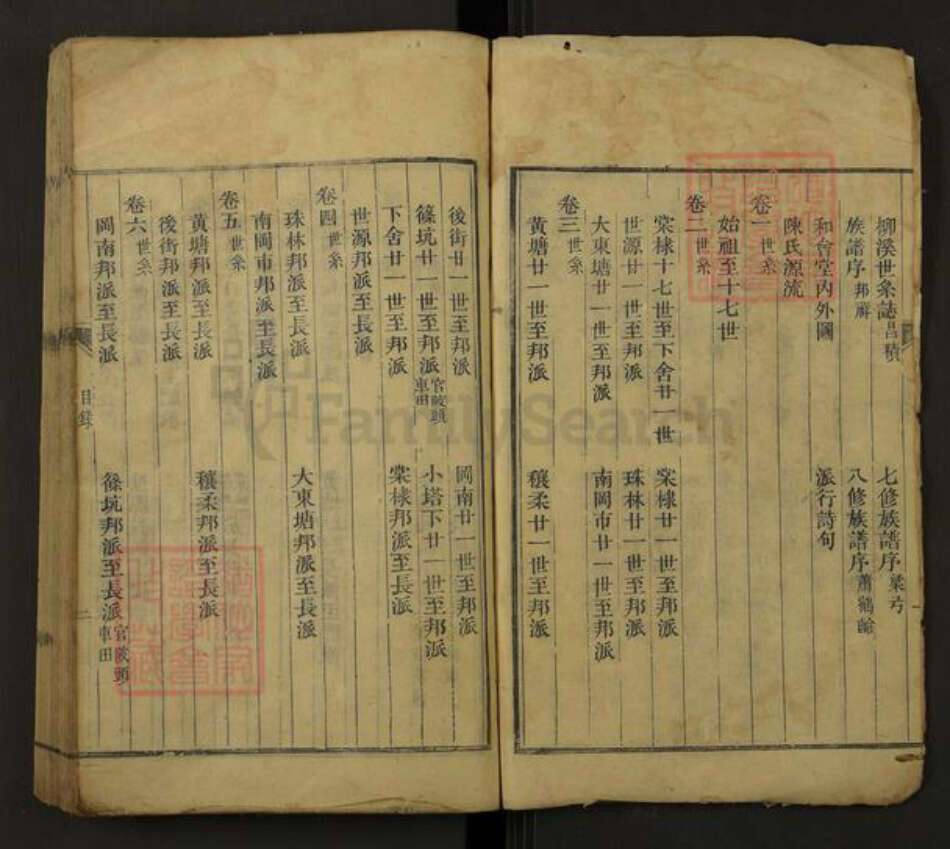 柳溪世系誌昌積 七修族譜序梁弓
族譜序邦屛 八修族譜序蕭鶴齡
和會堂內外圖 派行詩句
陳氏源流
卷一世系
始祖至十七世
卷二世系
棠棣十七世至下舍廿一世 棠棣廿一世至邦派
世源廿一世至邦派 珠林廿一世至邦派
大東塘廿一世至邦派 南岡市廿一世至邦派
卷三世系
黃塘廿一世至邦派 穰柔廿一世至邦派
後街廿一世至邦派 岡南廿一世至邦派
篠坑廿一世至邦派官陂頭車田 小塔下廿一世至邦派
下舍廿一世至邦派 棠棣邦派至長派
世源邦派至長派
卷四世系
珠林邦派至長派 大東塘邦派至長派
南岡市邦派至長派
卷五世系
黃塘邦派至長派 穰柔邦派至長派
後街邦派至長派
卷六世系
岡南邦派至長派 篠坑邦派至長派官陂頭車田
目錄 二
FamilySearch